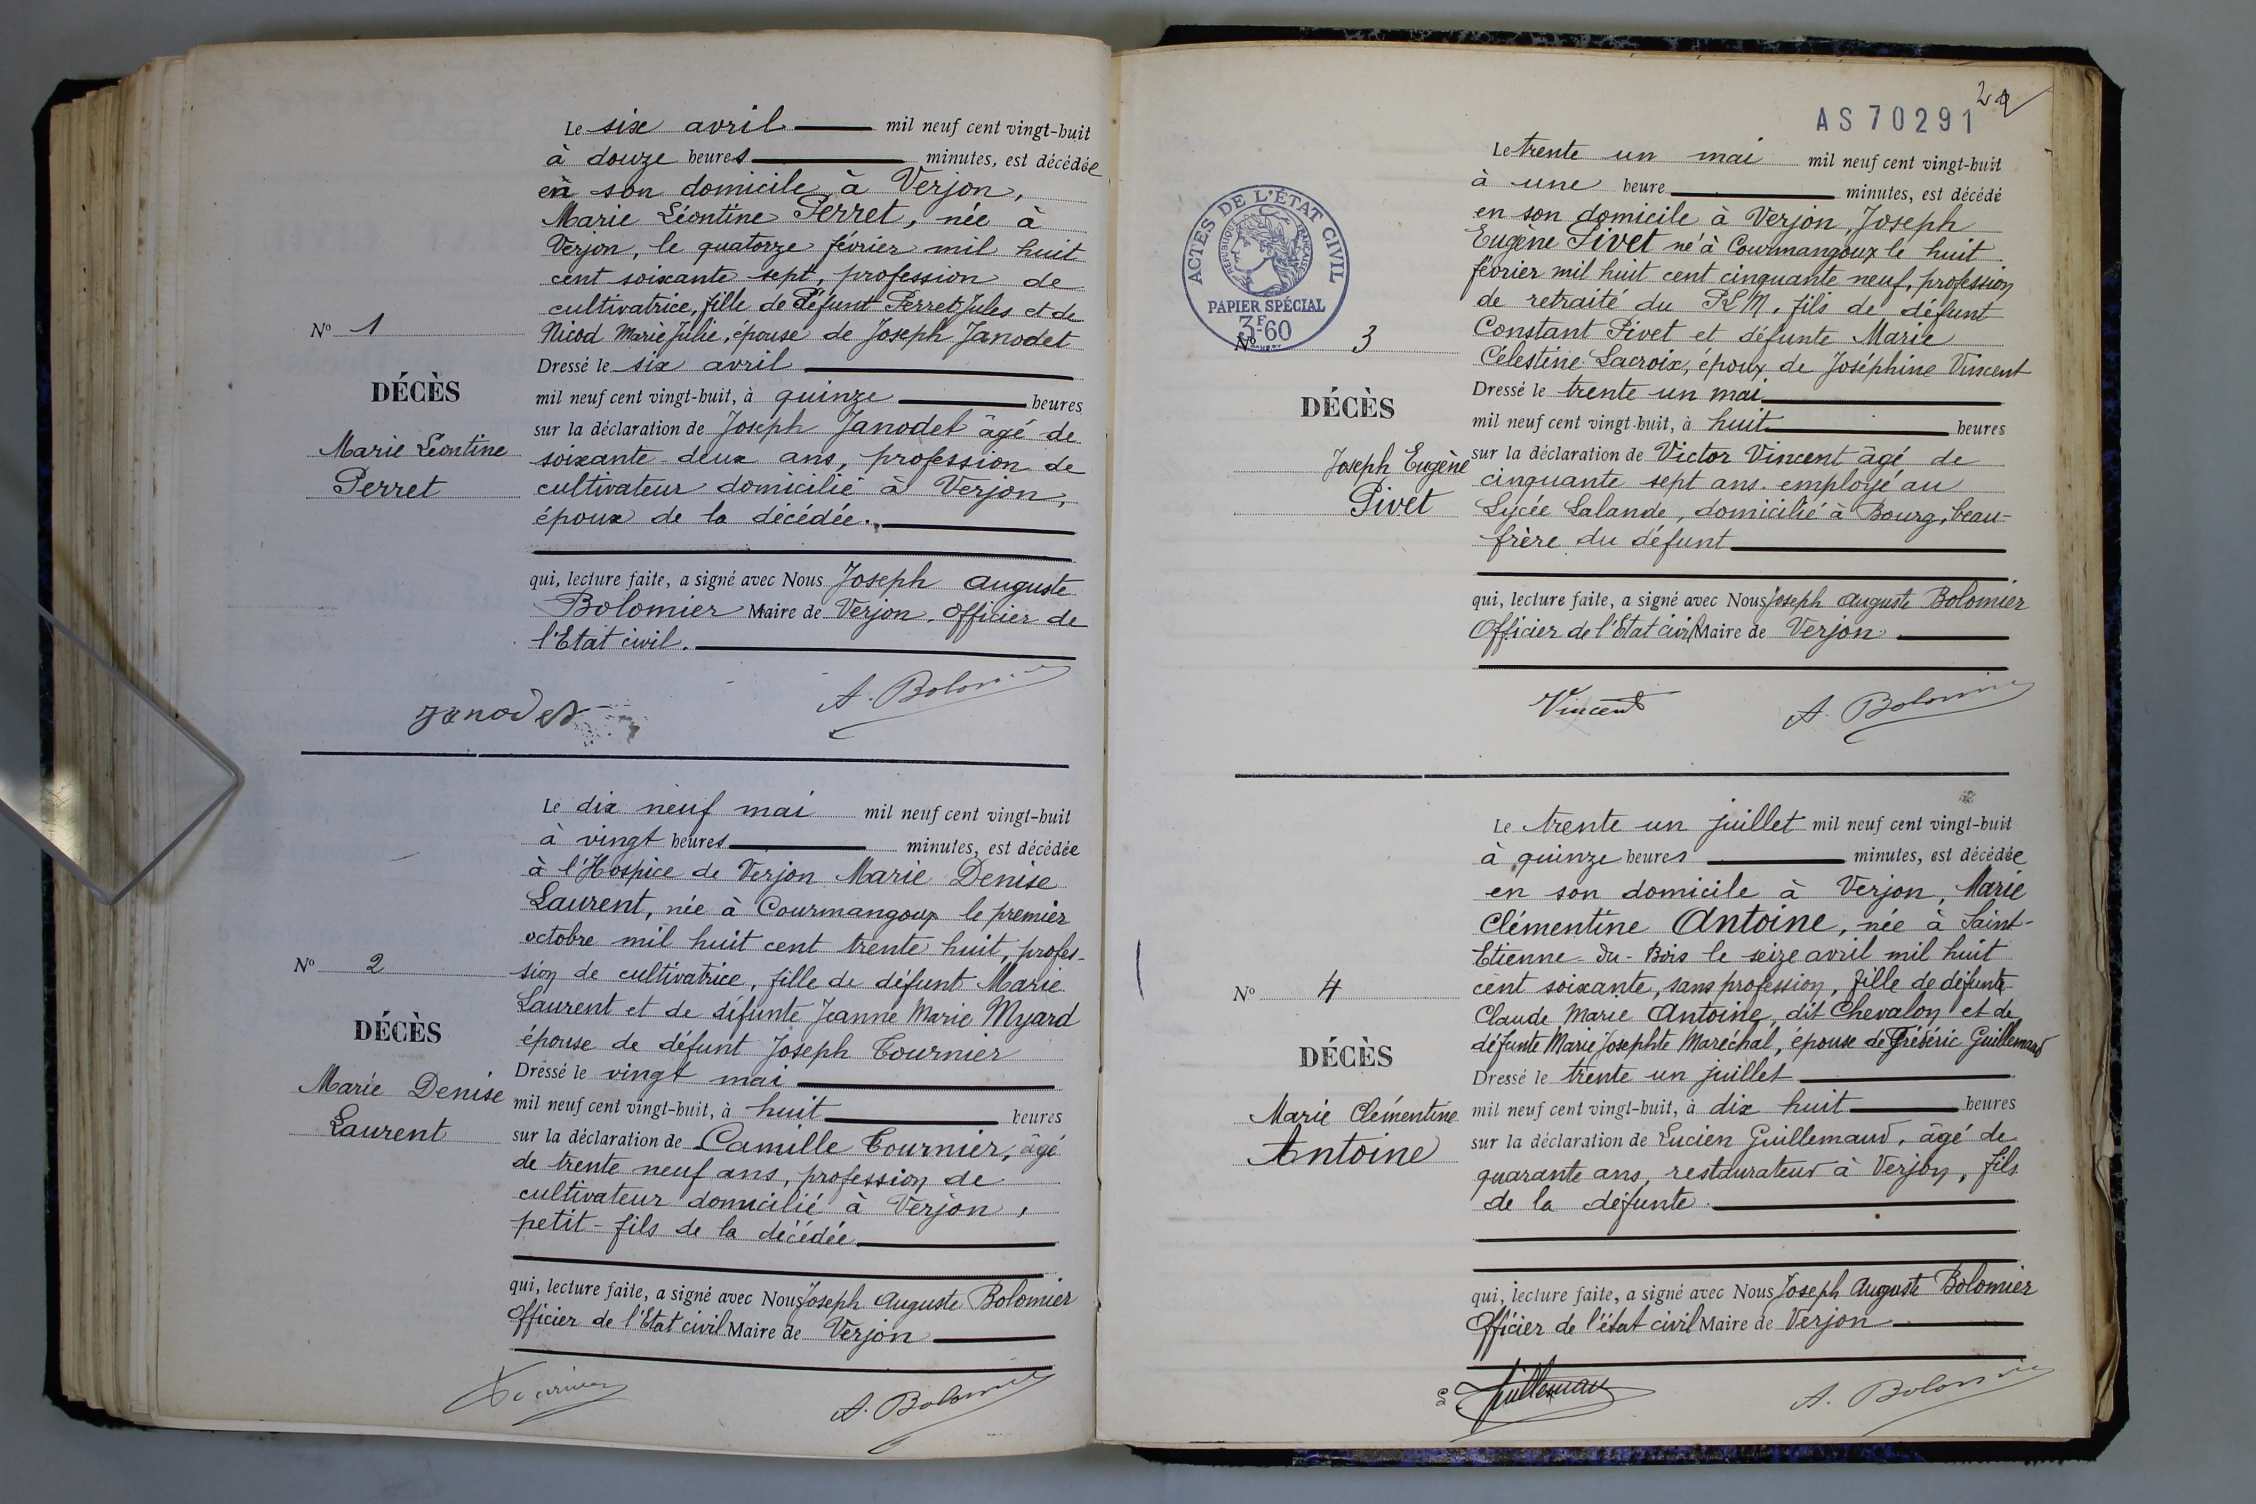 Le six avril mil neuf cent vingt-huit
à douze heures minutes, est décédée
en son domicile à Verjon,
Marie Léontine Perret, née à
Verjon, le quatorze février mil huit
cent soixante sept, profession de
cultivatrice, fille de Défunt Perret Jules et de
Nicod Marie Julie, épouse de Joseph Janodet
Nº 1
DÉCÈS
Marie Léontine
Perret
Dressé le six avril
mil neuf cent vingt-huit, à quinze heures
sur la déclaration de Joseph Janodet âgé de
soixante-deux ans, profession de
cultivateur domicilié à Verjon,
époux de la décédée.
qui, lecture faite, a signé avec Nous Joseph Auguste
Bolomier Maire de Verjon. Officier de
l'Etat civil.
Janodet
A. Bolomier
Le dix neuf mai mil neuf cent vingt-huit
à vingt heures minutes, est décédée
à l'Hospice de Verjon Marie Denise
Laurent, née à Courmangoux le premier
octobre mil huit cent trente huit, profes-
sion de cultivatrice, fille de défunt Marie
Laurent et de défunte Jeanne Marie Myard
épouse de défunt Joseph Tournier
Nº 2
DÉCÈS
Marie Denise
Laurent
Dressé le vingt mai
mil neuf cent vingt-huit, à huit heures
sur la déclaration de Camille Tournier, âgé
de trente neuf ans, profession de
cultivateur domicilié à Verjon,
petit-fils de la décédée
qui, lecture faite, a signé avec Nous Joseph Auguste Bolomier
Officier de l'Etat civil Maire de Verjon
Tournier
A. Bolomier
AS 70291
Le trente un mai mil neuf cent vingt-huit
à une heure minutes, est décédé
en son domicile à Verjon, Joseph
Eugène Pivet né à Courmangoux le huit
février mil huit cent cinquante neuf, profession
de retraité du PLM, fils de défunt
Constant Pivet et défunte Marie
Célestine Lacroix, époux de Joséphine Vincent
ACTES DE L'ÉTAT CIVIL
RÉPUBLIQUE FRANÇAISE
PAPIER SPÉCIAL
3F60
Nº 3
DÉCÈS
Joseph Eugène
Pivet
Dressé le trente un mai
mil neuf cent vingt-huit, à huit heures
sur la déclaration de Victor Vincent âgé de
cinquante sept ans. employé au
Lycée Lalande, domicilié à Bourg, beau-
frère du défunt
qui, lecture faite, a signé avec Nous Joseph Auguste Bolomier
Officier de l'Etat civil Maire de Verjon
Vincent
A. Bolomier
Le trente un juillet mil neuf cent vingt-huit
à quinze heures minutes, est décédée
en son domicile à Verjon, Marie
Clémentine Antoine, née à Saint-
Etienne-du-Bois le seize avril mil huit
cent soixante, sans profession, fille de défunt
Claude Marie Antoine, dit Chevalon et de
défunte Marie Josephte Maréchal, épouse de Frédéric Guillemaud
Nº 4
DÉCÈS
Marie Clémentine
Antoine
Dressé le trente un juillet
mil neuf cent vingt-huit, à dix huit heures
sur la déclaration de Lucien Guillemaud, âgé de
quarante ans, restaurateur à Verjon, fils
de la défunte
qui, lecture faite, a signé avec Nous Joseph Auguste Bolomier
Officier de l'état civil Maire de Verjon
Guillemaud
A. Bolomier